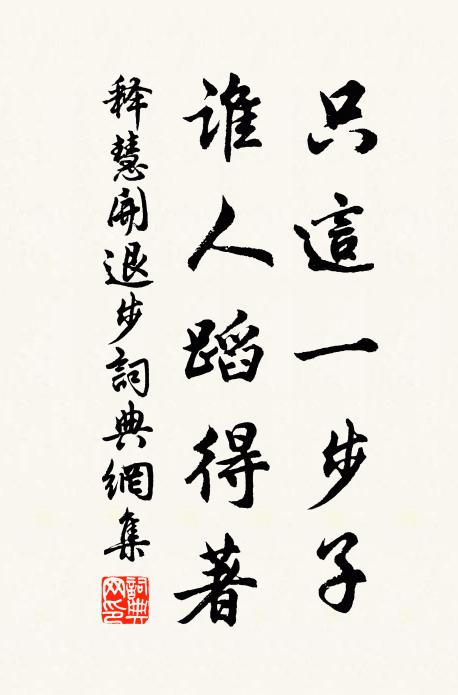 只這一步子
誰人蹈得著
释慧開退步詞典網集
詞典
网印